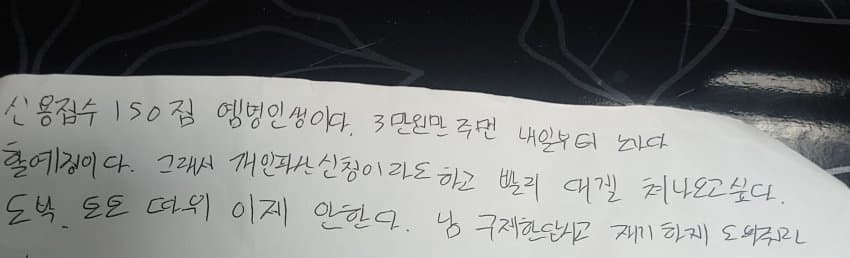 신용점수 150점 옘병인생이다. 3만원만 주면 내일부터 노가다
할예정이다. 그래서 개인파산신청이라도 하고 빨리 대겔 쳐나오고싶다.
도박. 토토 따위 이제 안한다. 낭 구제한답시고 재기하게 도와줘라